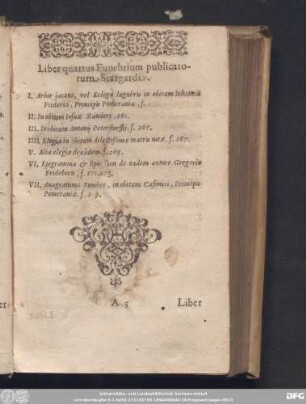 Liber quartus Funebrium publicato-
rum, Stargardiæ.
I. Arbor jacens, vel Eclog lugubris in obitum Iohannis
Friderici, Principis Pomeraniæ, f.
II. In obitum Iosuæ Rambere, 261.
III. In obitum Antonij Petersdorffij, f. 265.
IIII. Elegia in obitum dilectissimæ matris meæ. f. 267.
V. Alia elegia de eadem. f. 269.
VI. Epigramma & de eadem autore Gregorio
Frideborn, f. 271.273.
VII. Anagramma funebre, in obitum Casimiri, Principis
Pomeraniæ. f.
A 5
Liber
DFG